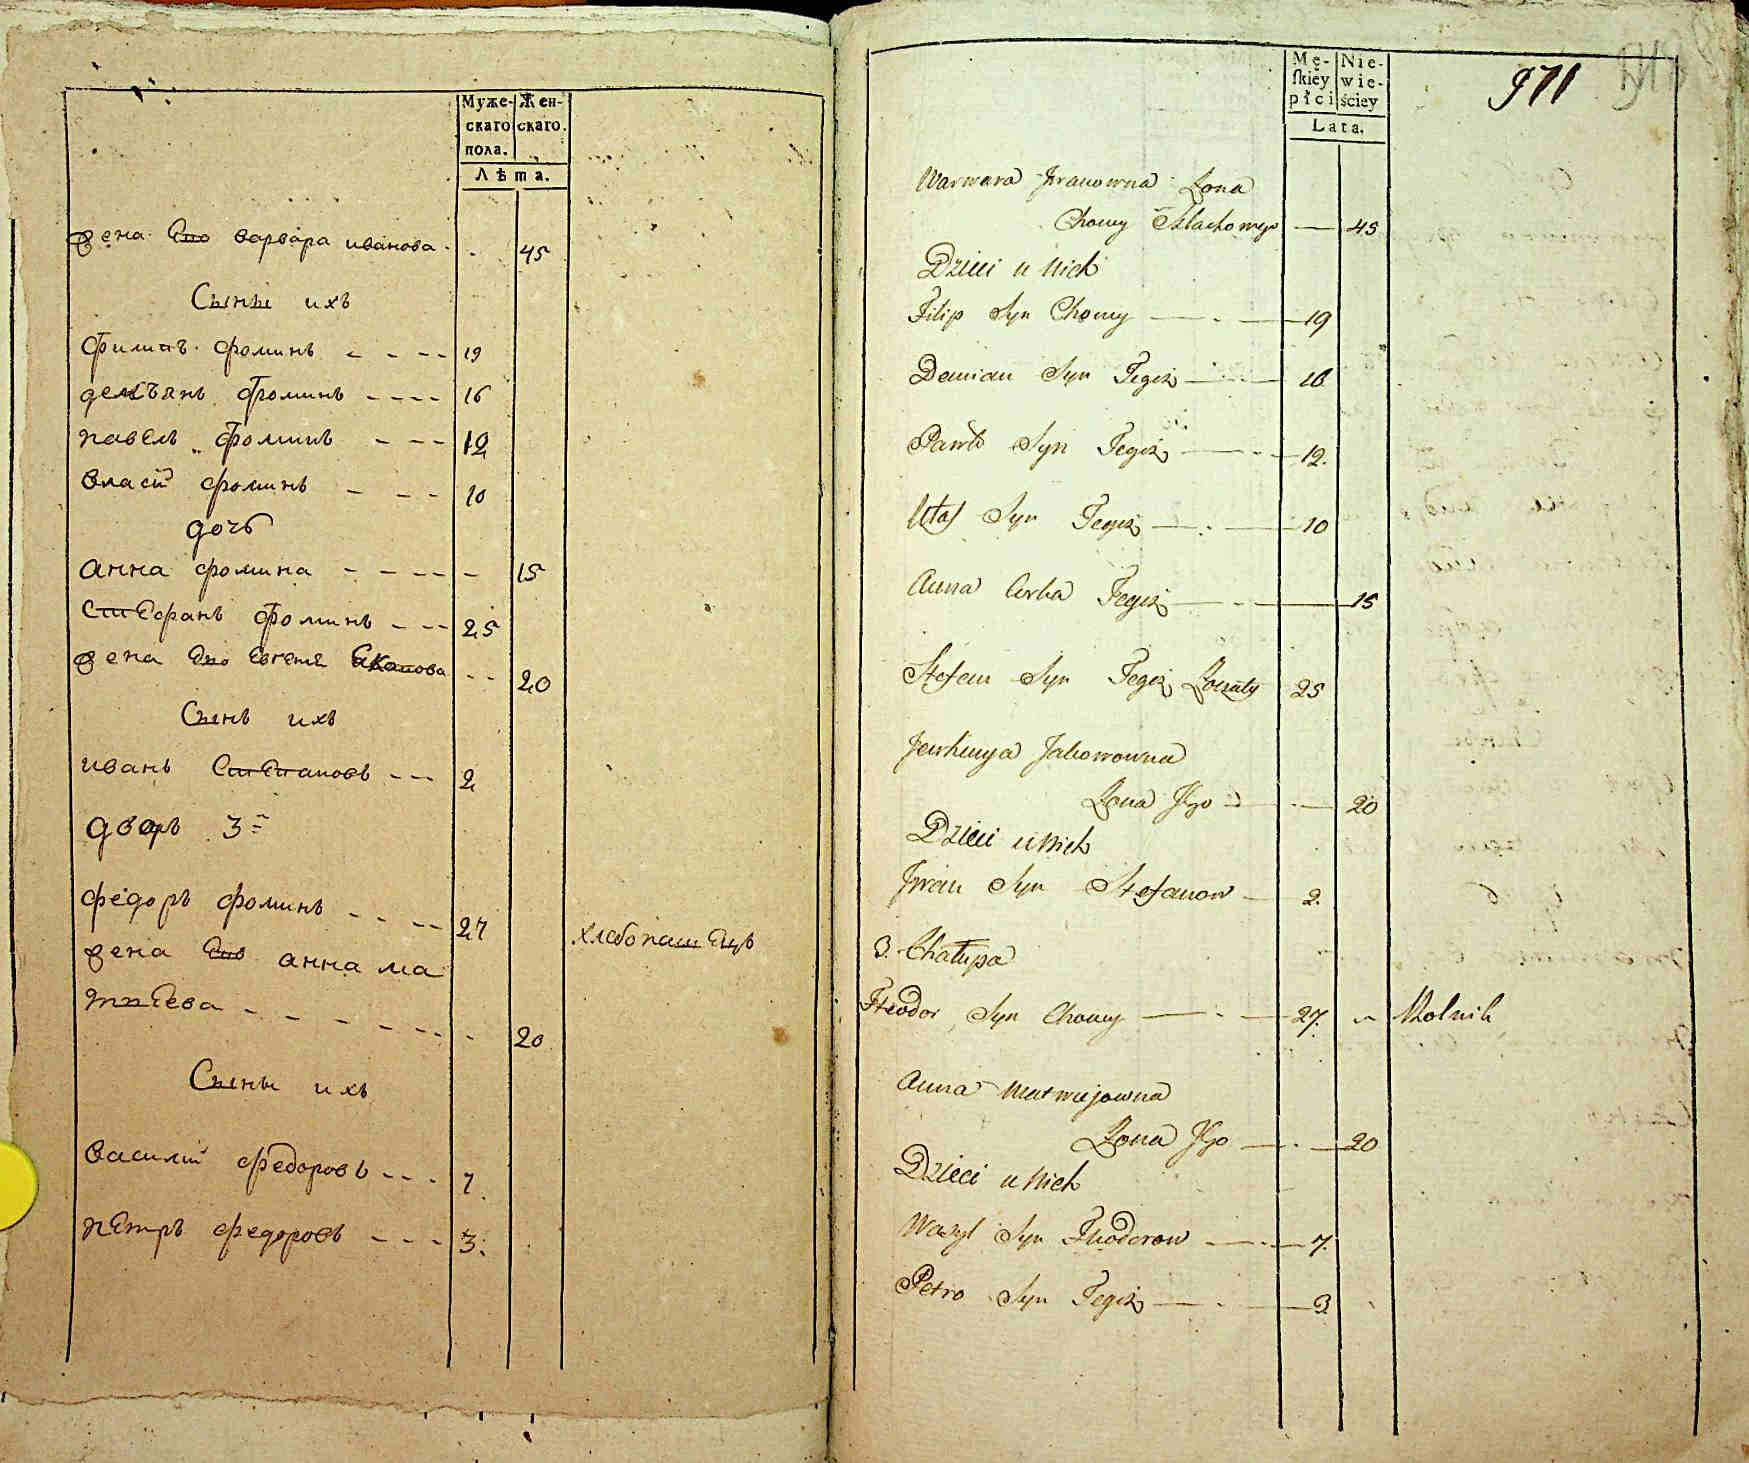 Муже-
скаго
пола.
Жен-
скаго.
Лѣта.
жена Его варвара иванова 45
Сыны ихъ
филипъ фоминъ 19
демъянъ фоминъ 16
павелъ фоминъ 12
власїй фоминъ 10
дочь
анна фомина 15
Стефанъ фоминъ 25
жена Его Евгенїя Якопова 20
Сынъ ихъ
иванъ Степановъ 2
дворъ 3й
федоръ фоминъ 27 хлебопашецъ
жена Его анна ма
твеева 20
Сыны ихъ
василїй федоровъ 7
петръ федоровъ 3.
Mę-
skiey
płci
Nie-
wie-
ściey
Lata.
971
Warwara Iwanowna Żona
Chomy 45
Dzieci u Nich
Filip Syn Chomy 19
Demian Syn Tegoż 16
Pawło Syn Tegoż 12.
Ułas Syn Tegoż 10
Anna Corka Tegoż 15
Stefan Syn Tegoż Żonaty 25
Jewhenya Jakowowna
Żona Jego 20
Dzieci u Nich
Iwan Syn Stefanow 2.
3. Chałupa
Theodor Syn Chomy 27. Rolnik
Anna Matwiejowna
Żona Jego 20
Dzieci u Nich
Wasyl Syn Theodorow 7.
Petro Syn Tegoż 3